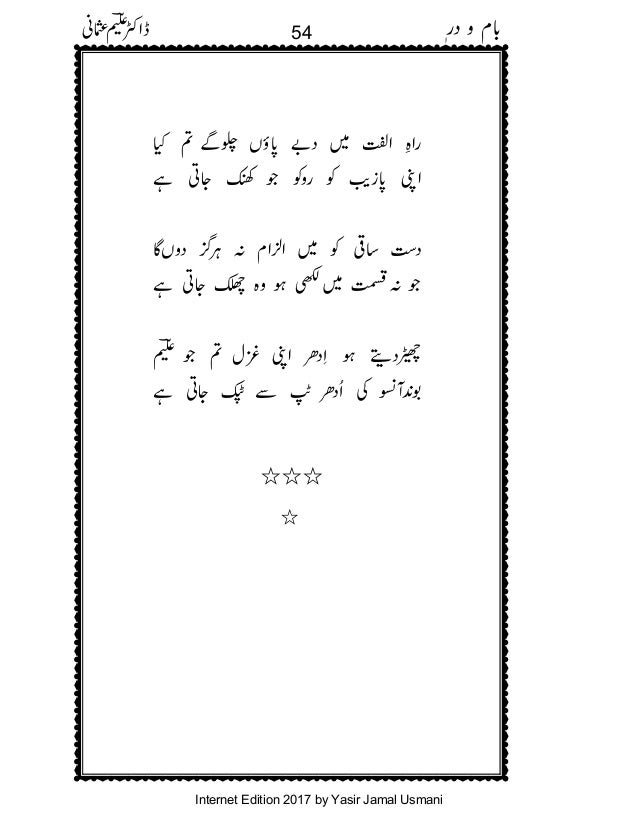 بام و در 54 ڈاکٹر علیمؔ عثمانی
راہِ الفت میں دبے پاؤں چلوگے تم کیا
اپنی پازیب کو روکو جو کھنک جاتی ہے
دست ساقی کو میں الزام نہ ہرگز دوں گا
جو نہ قسمت میں لکھی ہو وہ چھلک جاتی ہے
چھیڑدیتے ہو اِدھر اپنی غزل تم جو علیمؔ
بوندآنسو کی اُدھر ٹپ سے ٹپک جاتی ہے
☆☆☆
☆
Internet Edition 2017 by Yasir Jamal Usmani